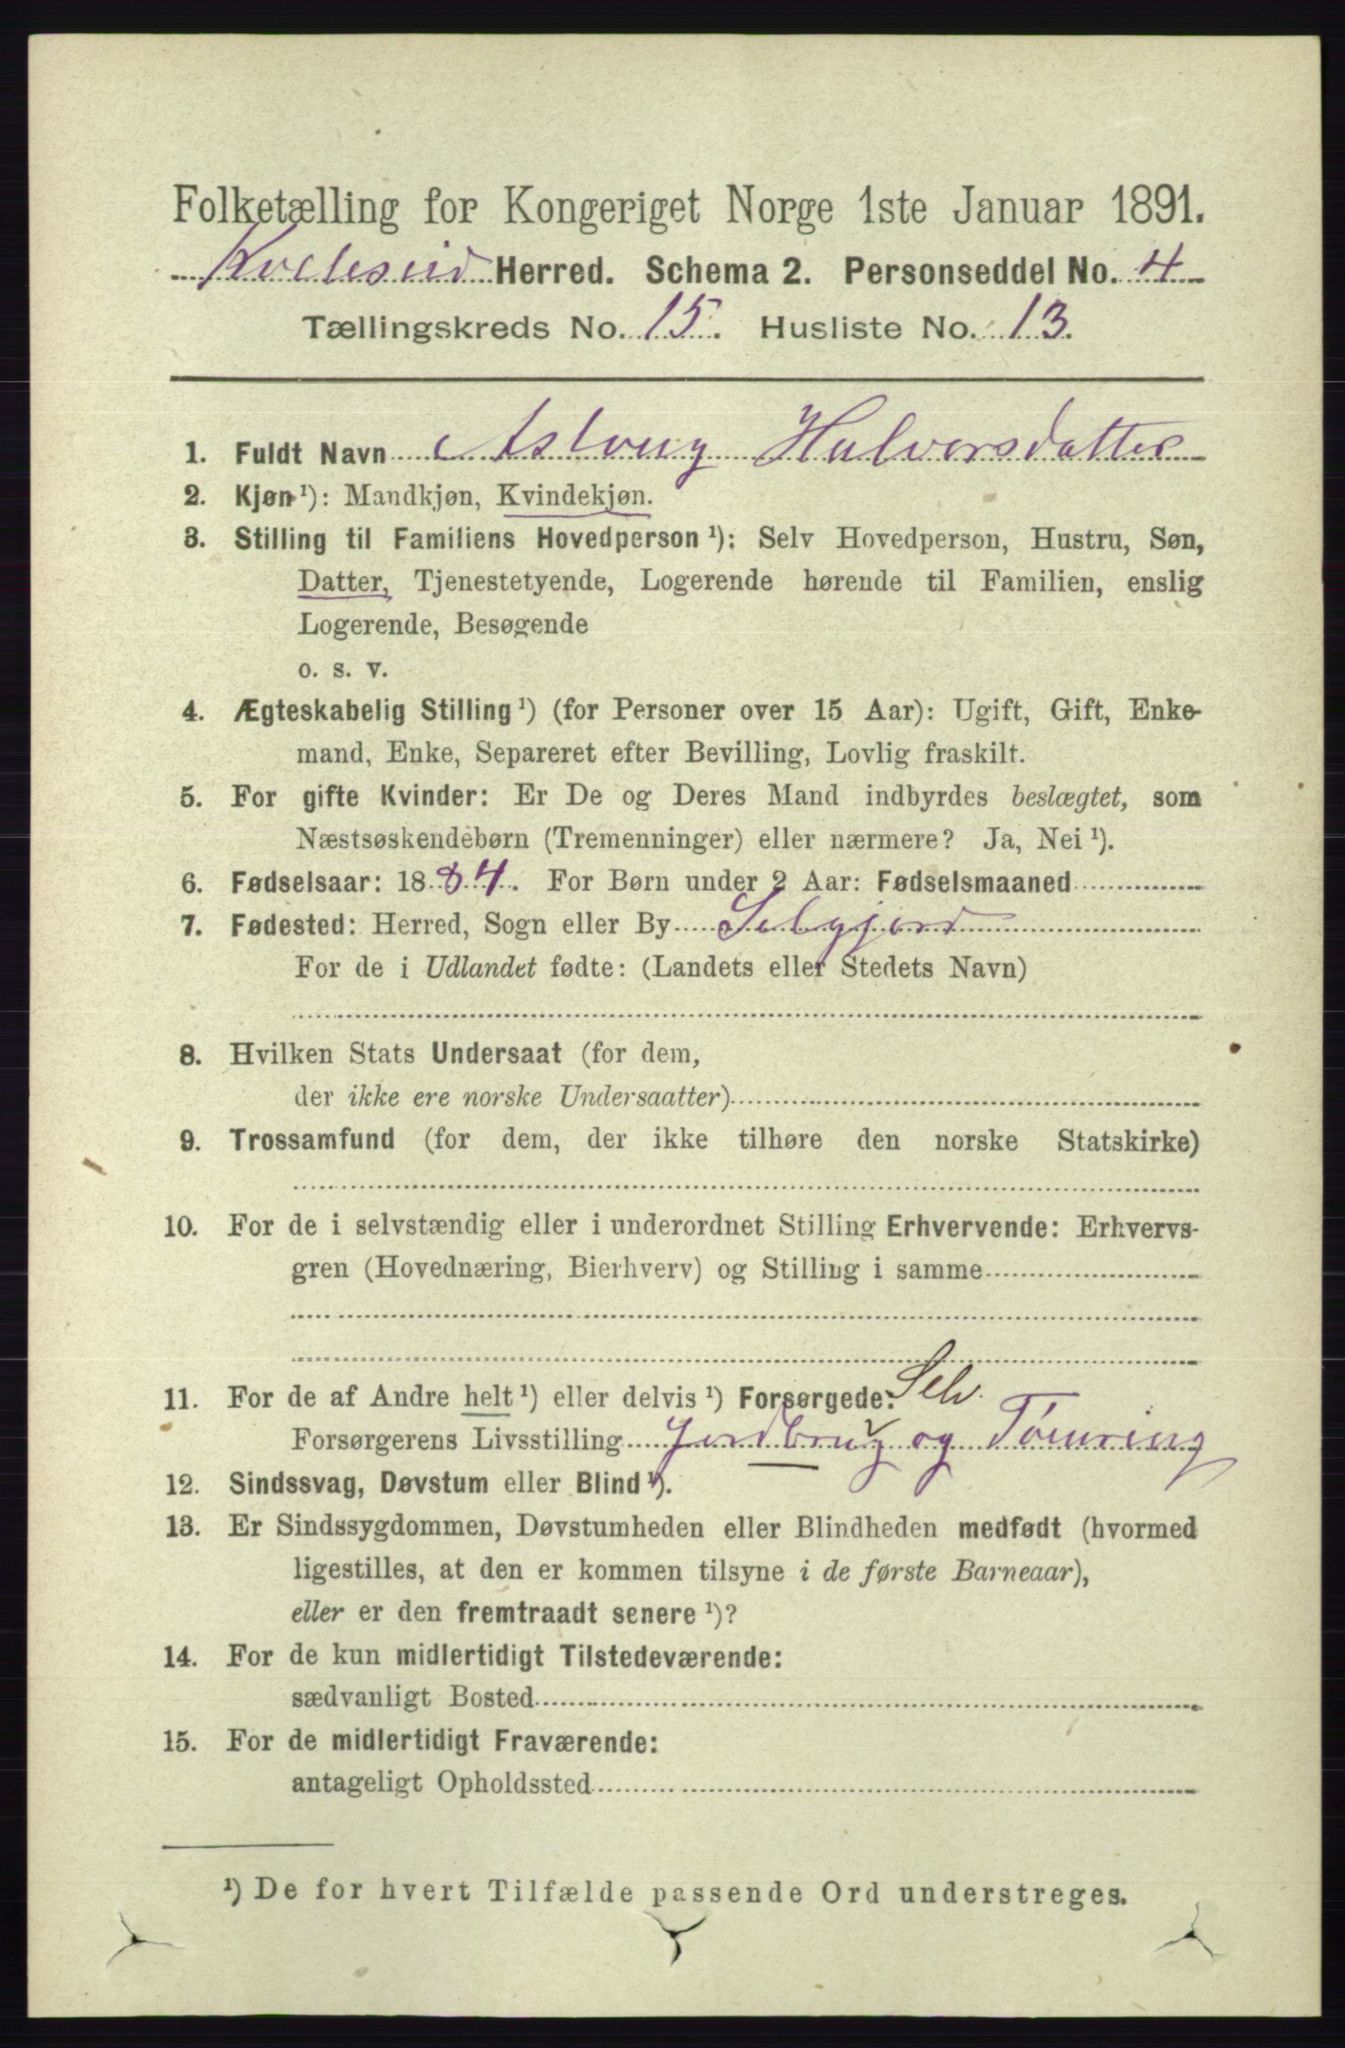 Folketælling for Kongeriget Norge 1ste Januar 1891.
Kviteseid Herred. Schema 2. Personseddel No. 4
Tællingskreds No. 15. Husliste No. 13.
1. Fuldt Navn Aslaug Halvorsdatter
2. Kjøn ¹): Mandkjøn, Kvindekjøn.
3. Stilling til Familiens Hovedperson ¹): Selv Hovedperson, Hustru, Søn,
Datter, Tjenestetyende, Logerende hørende til Familien, enslig
Logerende, Besøgende
o. s. v.
4. Ægteskabelig Stilling ¹) (for Personer over 15 Aar): Ugift, Gift, Enke-
mand, Enke, Separeret efter Bevilling, Lovlig fraskilt.
5. For gifte Kvinder: Er De og Deres Mand indbyrdes beslægtet, som
Næstsøskendebørn (Tremenninger) eller nærmere? Ja, Nei ¹).
6. Fødselsaar: 1884. For Børn under 2 Aar: Fødselsmaaned
7. Fødested: Herred, Sogn eller By Selgjord
For de i Udlandet fødte: (Landets eller Stedets Navn)
8. Hvilken Stats Undersaat (for dem,
der ikke ere norske Undersaatter)
9. Trossamfund (for dem, der ikke tilhøre den norske Statskirke)
10. For de i selvstændig eller i underordnet Stilling Erhvervende: Erhvervs-
gren (Hovednæring, Bierhverv) og Stilling i samme
11. For de af Andre helt ¹) eller delvis ¹) Forsørgede: Selv.
Forsørgerens Livsstilling Jordbrug og Tømring
12. Sindssvag, Døvstum eller Blind ¹).
13. Er Sindssygdommen, Døvstumheden eller Blindheden medfødt (hvormed
ligestilles, at den er kommen tilsyne i de første Barneaar),
eller er den fremtraadt senere ¹)?
14. For de kun midlertidigt Tilstedeværende:
sædvanligt Bosted
15. For de midlertidigt Fraværende:
antageligt Opholdssted
¹) De for hvert Tilfælde passende Ord understreges.